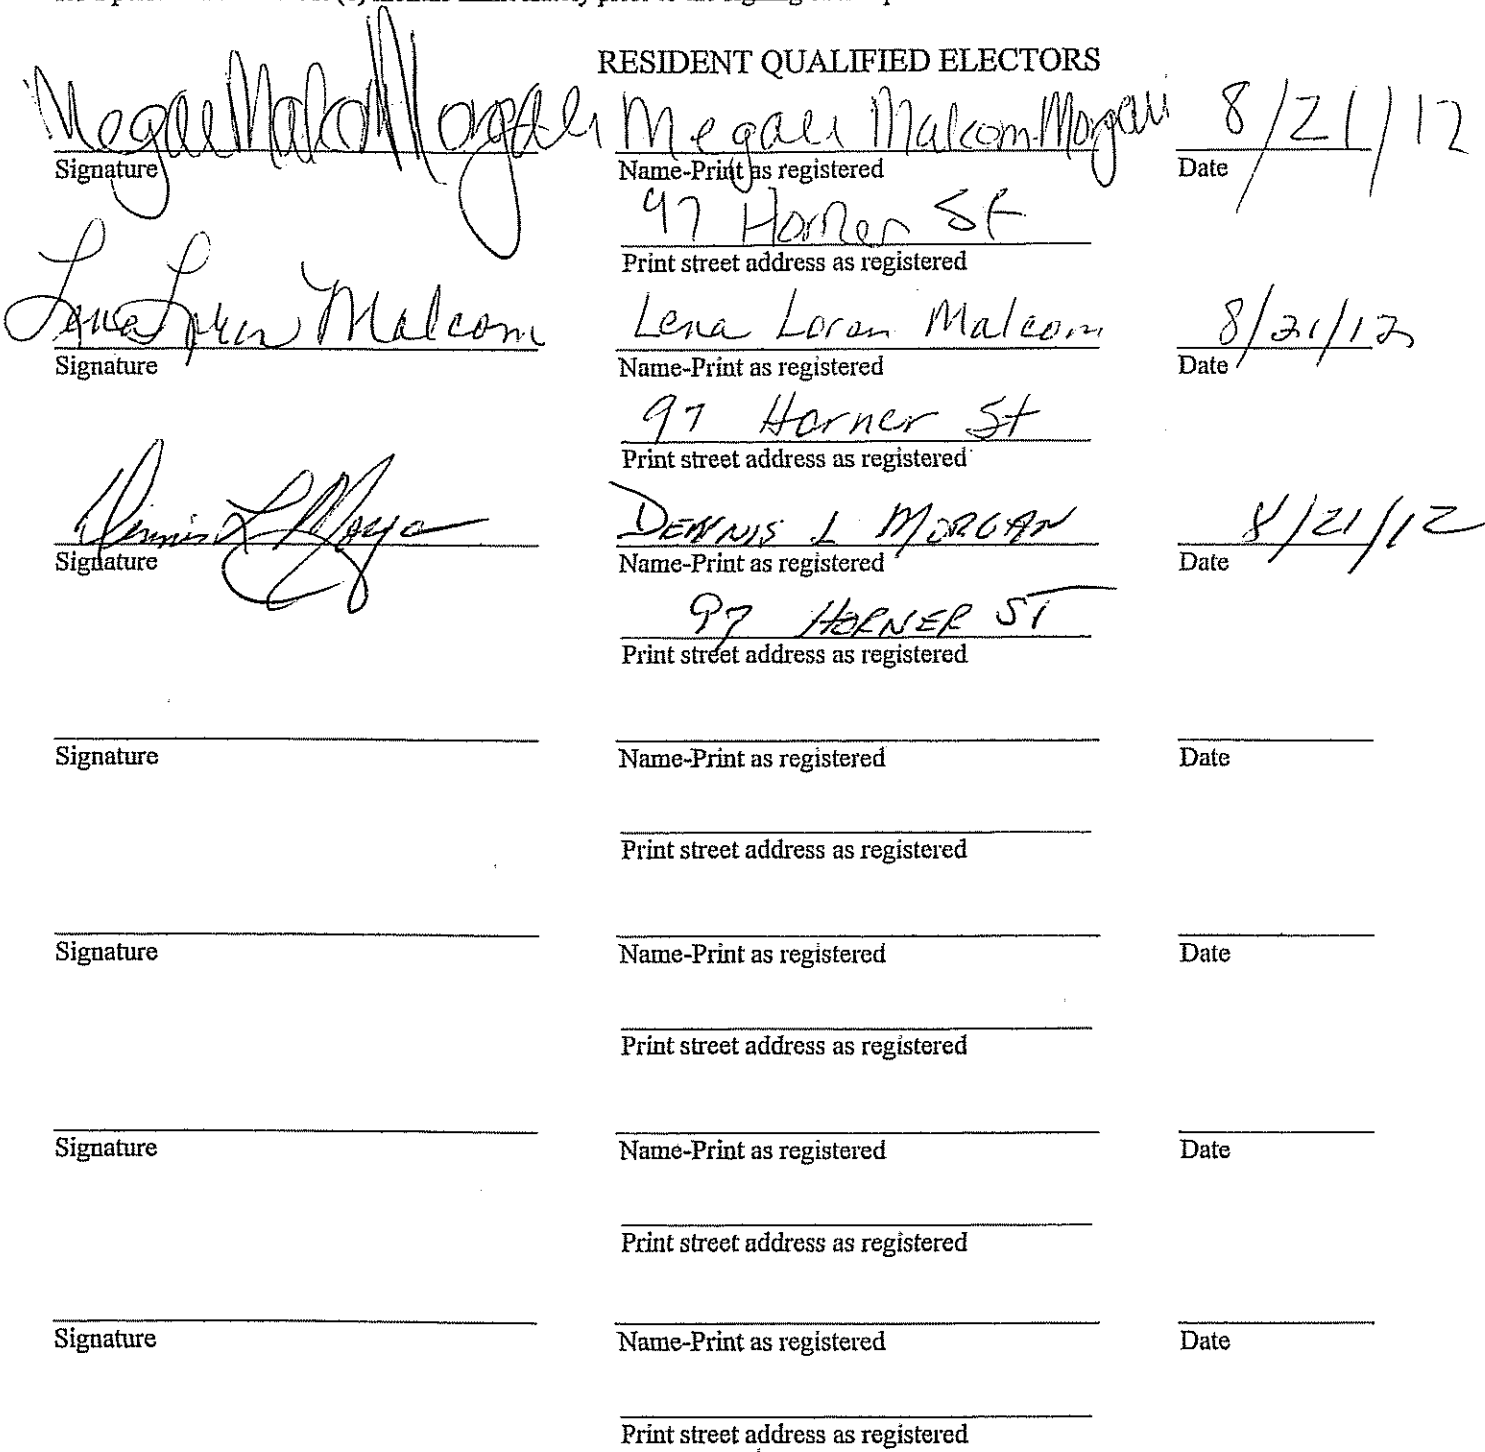 RESIDENT QUALIFIED ELECTORS
Megan Malcom Morgan Megan Malcom-Morgan 8/21/12
Signature Name-Print as registered Date
97 Horner St
Print street address as registered
Lena Loran Malcom Lena Loran Malcom 8/21/12
Signature Name-Print as registered Date
97 Horner St
Print street address as registered
Dennis L Morgan DENNIS L MORGAN 8/21/12
Signature Name-Print as registered Date
97 HORNER ST
Print street address as registered
Signature Name-Print as registered Date
Print street address as registered
Signature Name-Print as registered Date
Print street address as registered
Signature Name-Print as registered Date
Print street address as registered
Signature Name-Print as registered Date
Print street address as registered